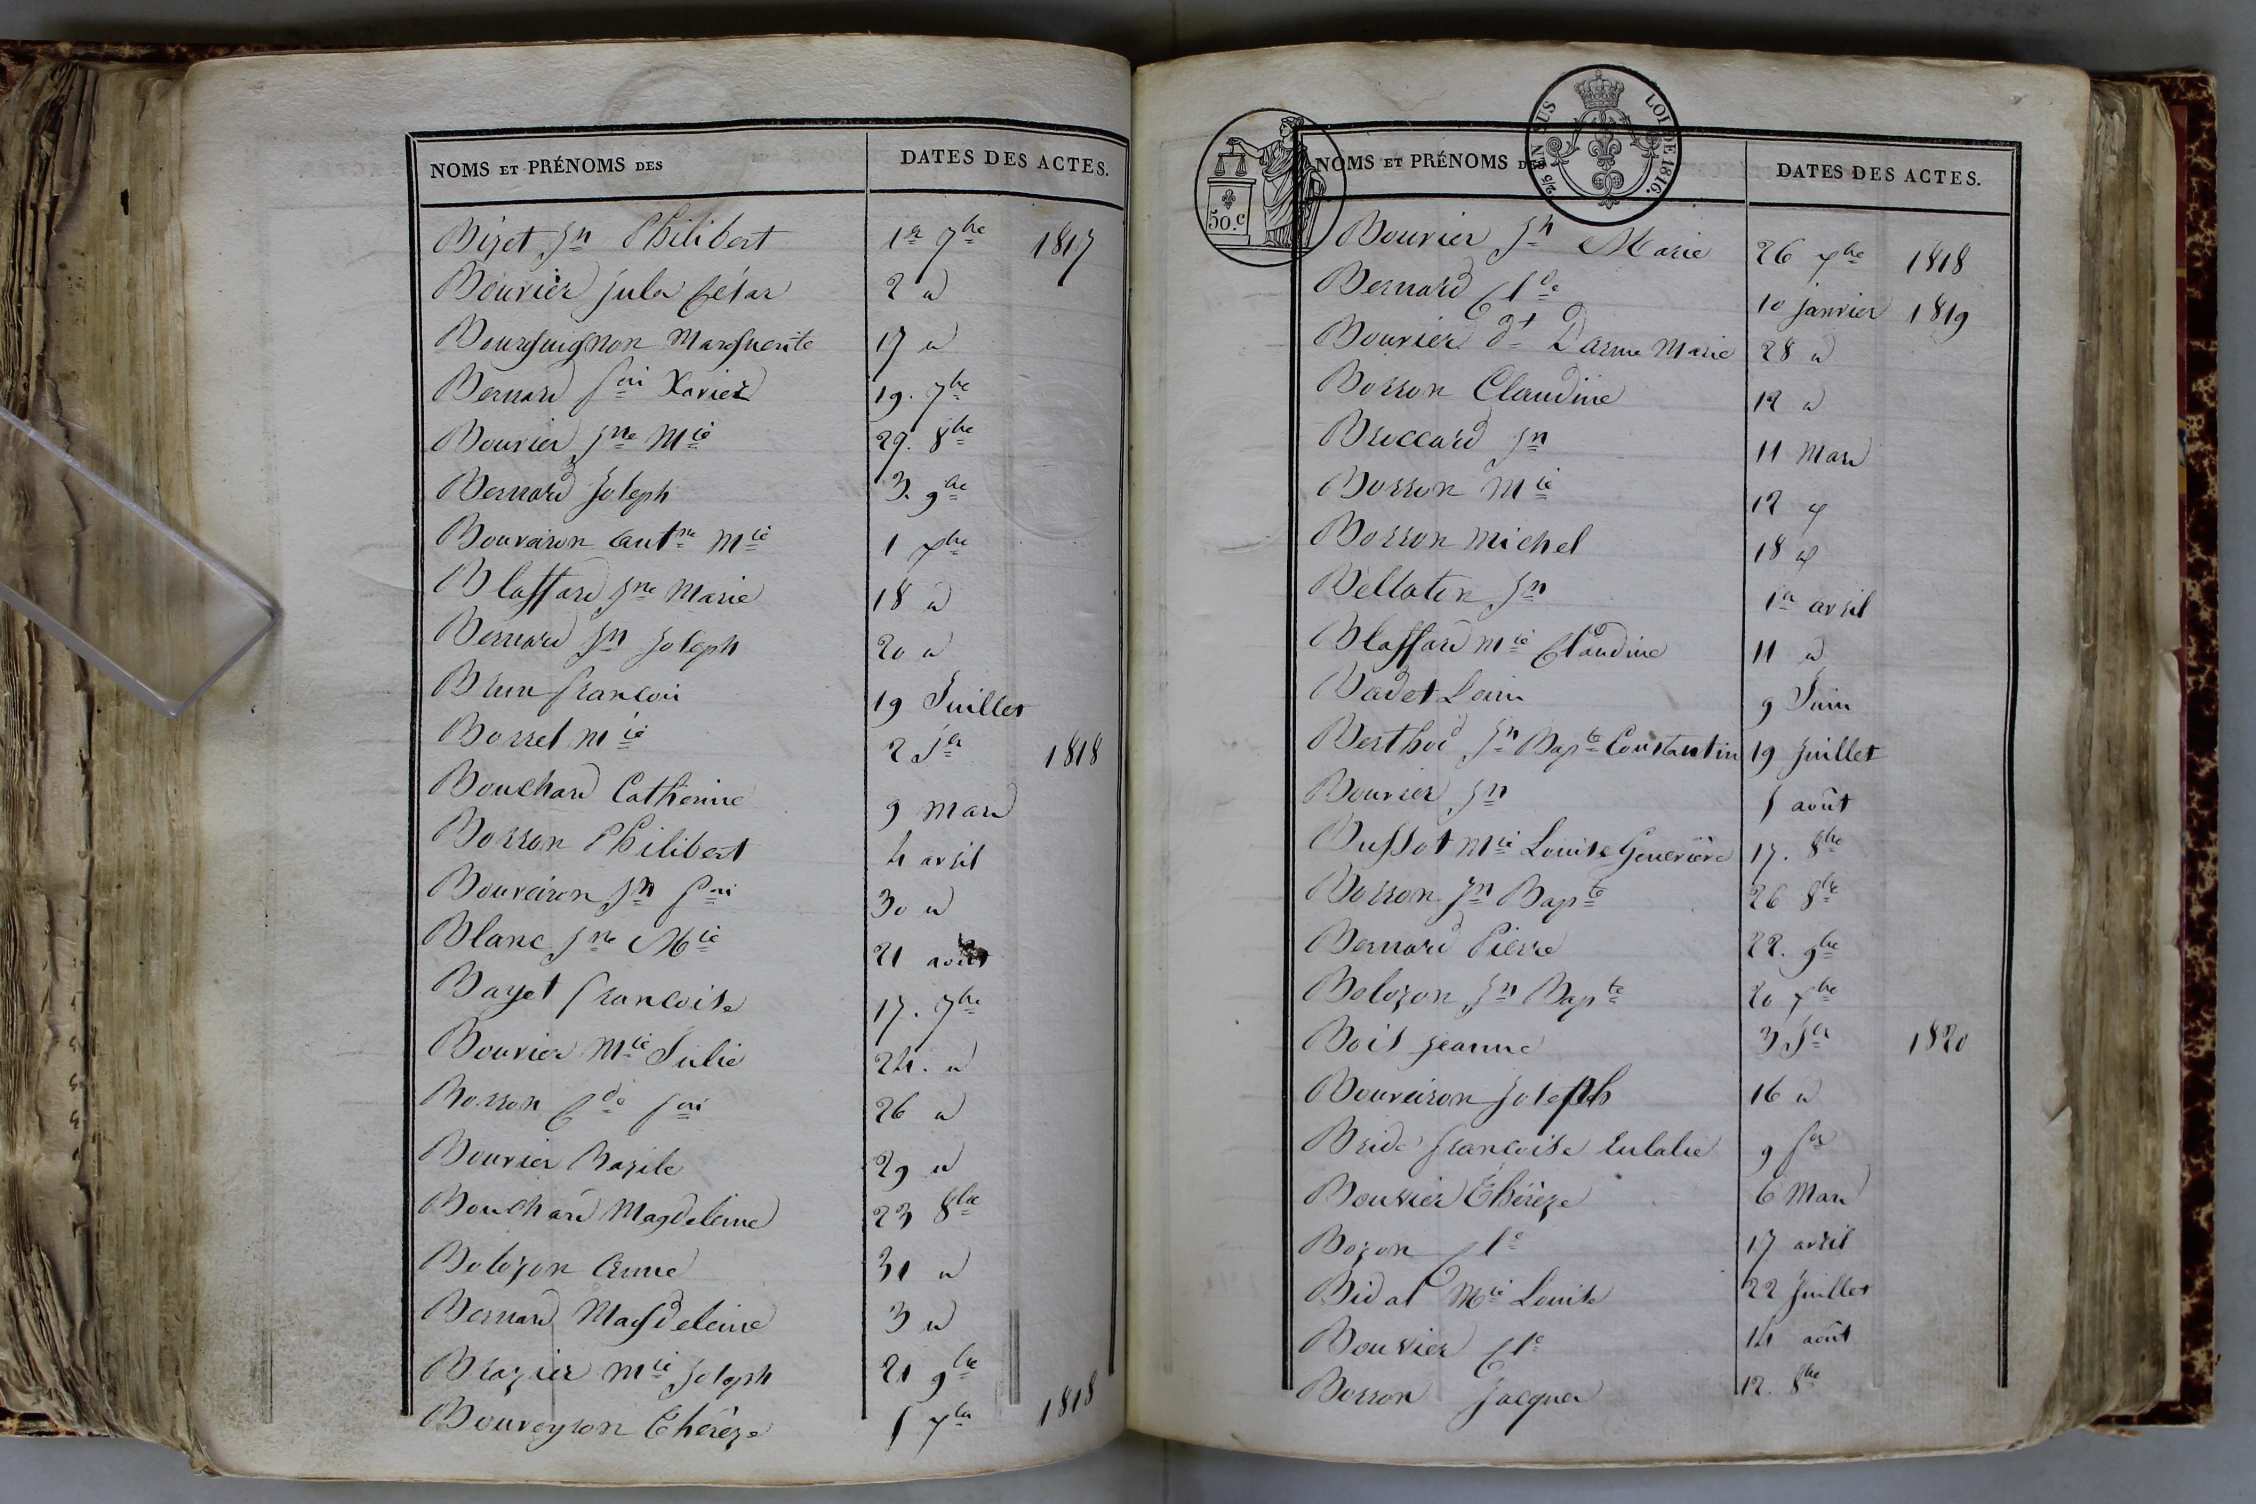 NOMS ET PRÉNOMS DES DATES DES ACTES.
Bizet Jn Philibert 1er 7bre 1817
Bouvier Jules César 2 d
Bourguignon Marguerite 17 d
Bernard foi Xavier 19. 7bre
Bouvier Jne Mie 29. 8bre
Bernard Joseph 3. 9bre
Bouveiron antne Mie 1 xbre
Blaffard Jne Marie 18 d
Bernard Jn Joseph 20 d
Brun françois 19 Juillet
Borrel Mie 2 Jer 1818
Bouchard Catherine 9 Mars
Borron Philibert 4 avril
Bouveiron Jn foi 30 d
Blanc Jne Mie 21 août
Bayet françoise 17. 7bre
Bouvier Mie Julie 24. d
Borron Cde foi 26 d
Bouvier Bazile 29 d
Bouchard Magdeleine 23 8bre
Bolozon Anne 31 d
Bernard Magdeleine 3 d
Brazier Mie Joseph 21 9bre
Bouveyron Thérèze 5 xbre 1818
50.c
EN SUS LOI DE 1816.
NOMS ET PRÉNOMS DES DATES DES ACTES.
Bouvier Jh Marie 26 xbre 1818
Bernard Cde 10 janvier 1819
Bouvier dt Darme Marie 28 d
Borron Claudine 12 d
Broccard Jn 11 Mars
Borron Mie 12 d
Borron Michel 18 d
Bellaton Jn 1er avril
Blaffard Mie Claudine 11 d
Badet Louis 9 Juin
Berthod Jn Bapte Constantin 19 Juillet
Bouvier Jn 5 août
Buffot Mie Louise Geneviève 17. 8bre
Borron Jn Bapte 26 8bre
Bernard Pierre 22. 9bre
Bolozon Jn Bapte 20 xbre
Boit jeanne 3 Jer 1820
Bouveiron Joseph 16 d
Bride françoise Eulalie 9 fer
Bouvier Thérèze 6 Mars
Bozon Cde 17 avril
Bidal Mie Louise 22 Juillet
Bouvier Cde 14 août
Borron Jacques 12. 8bre